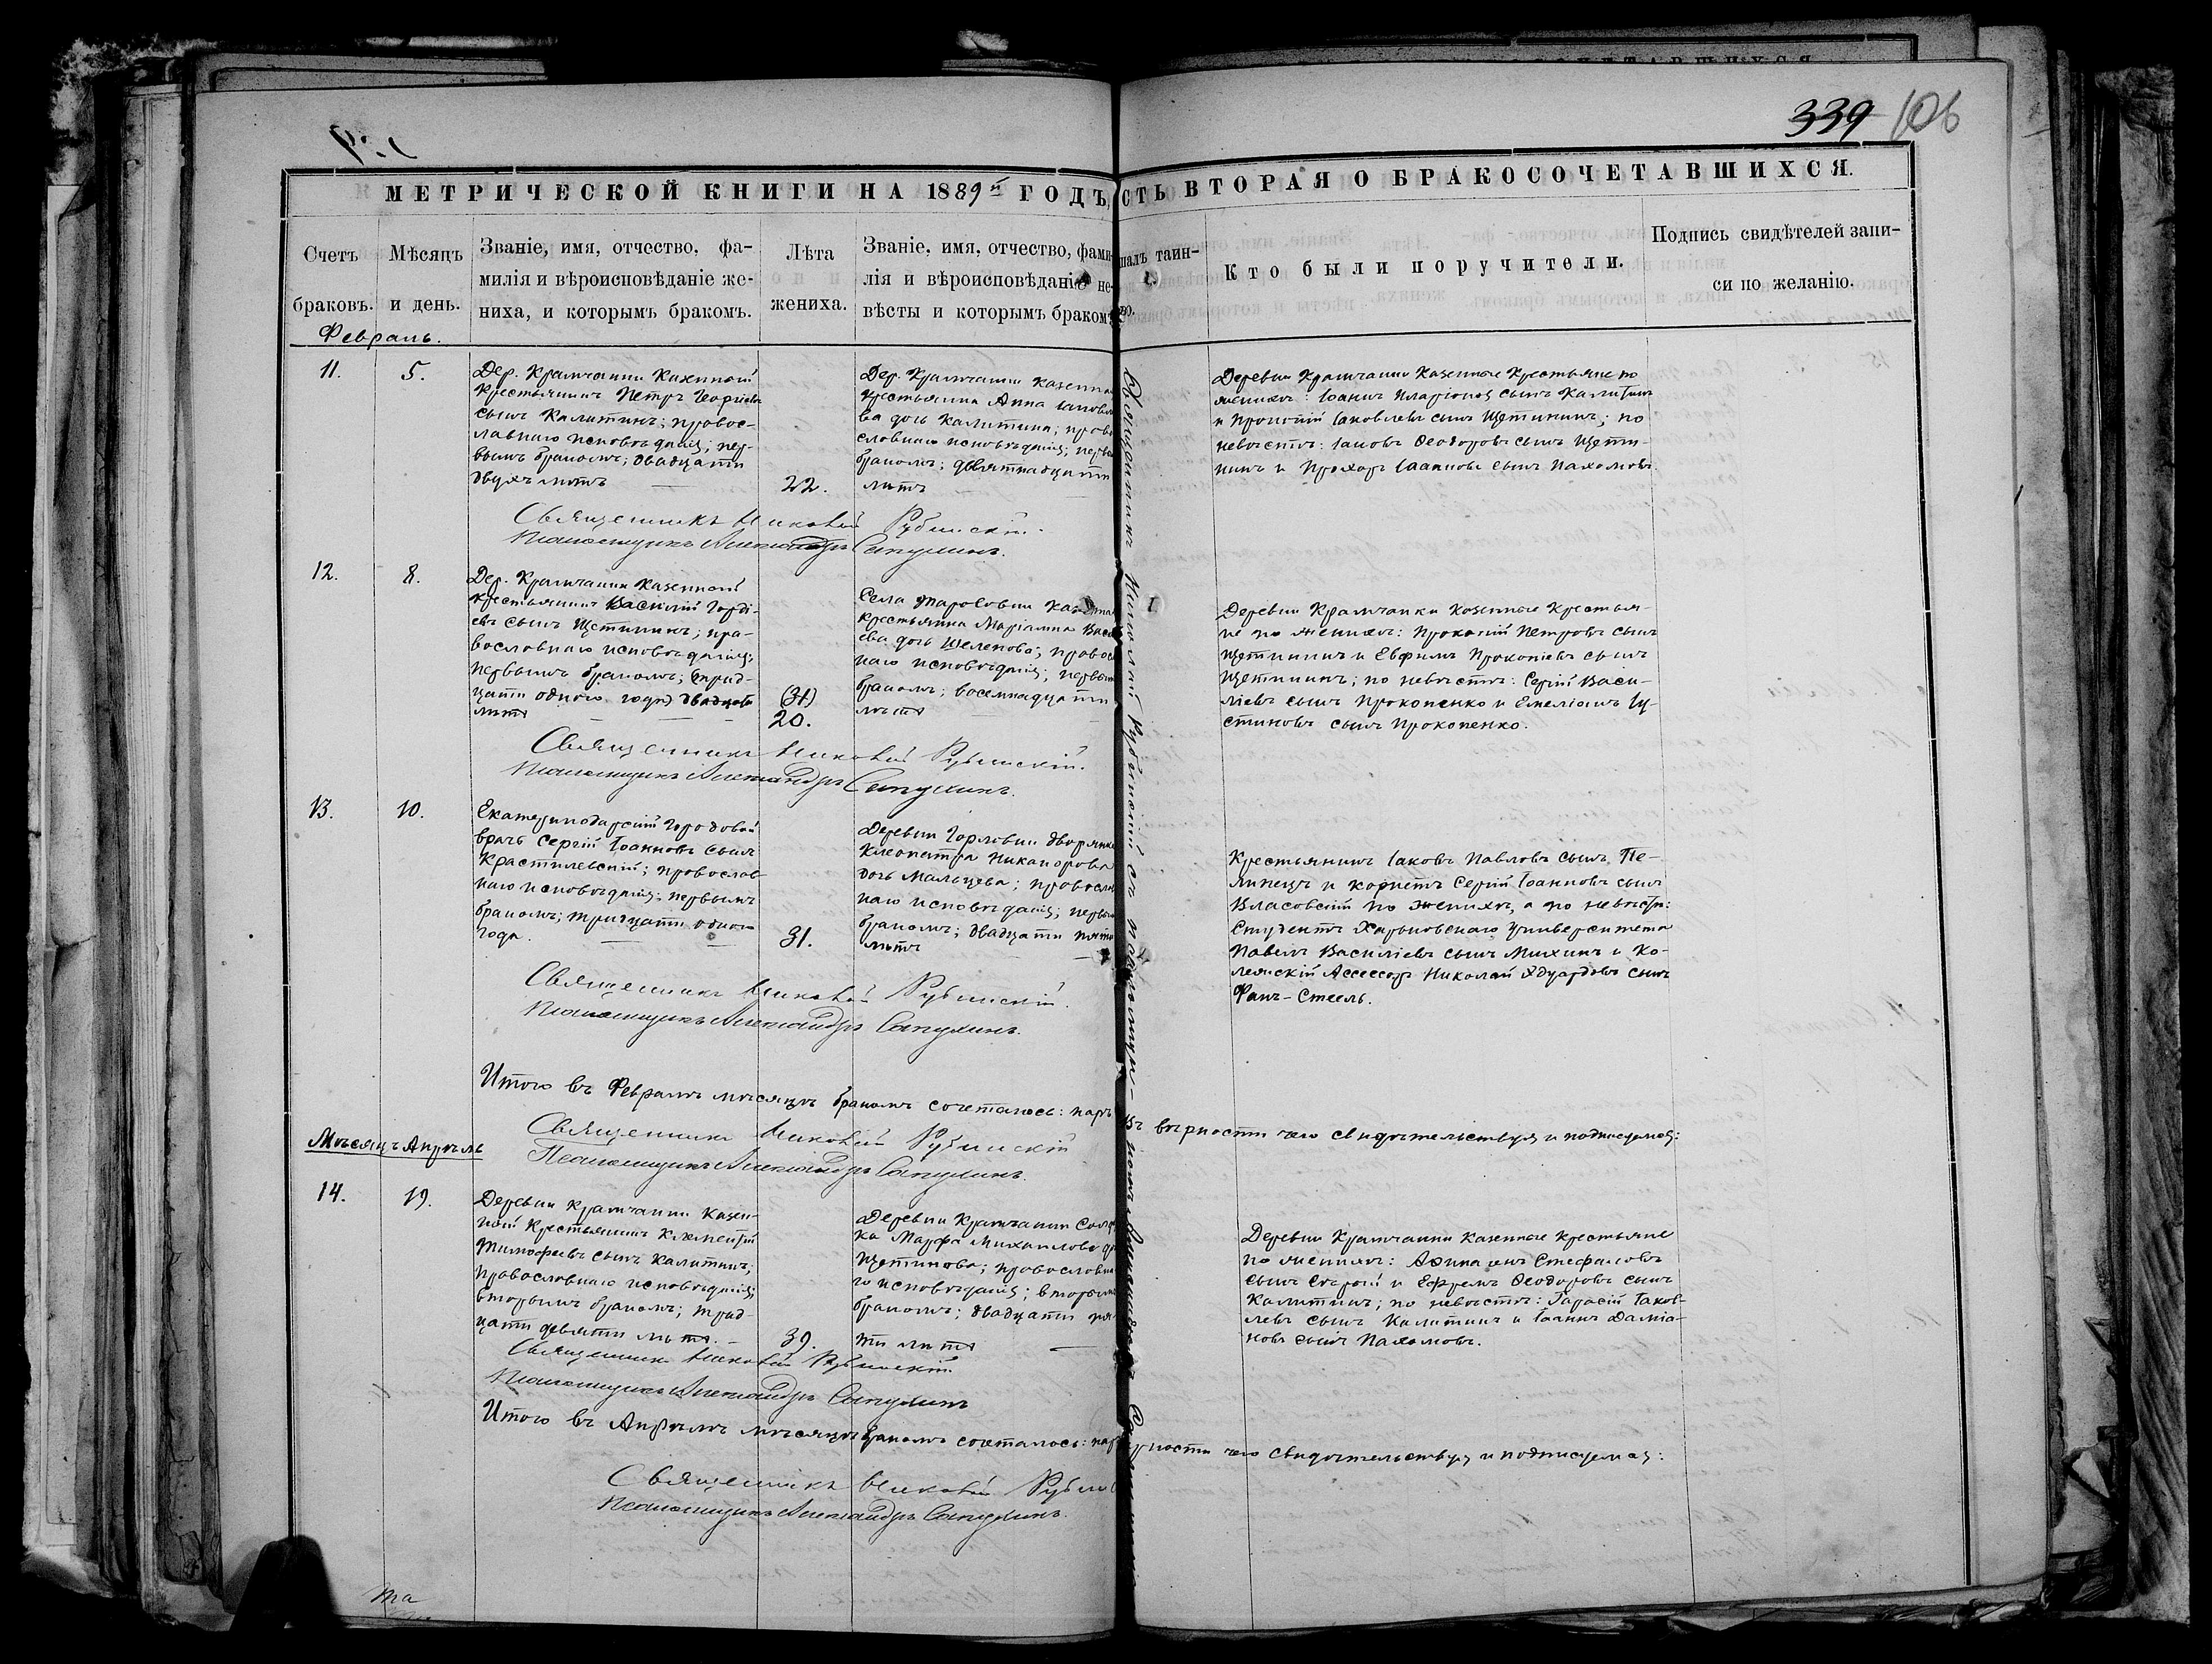 339 106
МЕТРИЧЕСКОЙ КНИГИ НА 1889й ГОДЪ,
СТЬ ВТОРАЯ О БРАКОСОЧЕТАВШИХСЯ.
Счетъ браковъ.
Мѣсяцъ и день.
Званіе, имя, отчество, фа-
милія и вѣроисповѣданіе же-
ниха, и которымъ бракомъ.
Лѣта
жениха.
Званіе, имя, отчество, фами-
лія и вѣроисповѣданіе не-
вѣсты и которымъ бракомъ
шалъ таин-
Кто были поручители.
Подпись свидѣтелей запи-
си по желанію.
Февраль.
11.
5.
Дер. Крамчанки Казенный
Крестьянинъ Петръ Георгіевъ
сынъ Калитинъ; правос-
лавнаго исповѣданія; пер-
вымъ бракомъ; двадцати
двухъ лѣтъ
22.
Дер. Крамчанки Казенна
Крестьянка Анна Іаковле
ва дочь Калитина; право
славнаго исповѣданія; первы
бракомъ; девятнадцати
лѣтъ
Деревни Крамчанки Казенные Крестьяне по
женихѣ: Іоаннъ Иларіоновъ сынъ Калитинъ
и Прокопій Іаковлевъ сынъ Щетининъ; по
невѣстѣ: Іаковъ Ѳеодоровъ сынъ Щети-
нинъ и Прохоръ Іоанновъ сынъ Пахомовъ.
Священникъ Николай Рубинскій.
Псаломщикъ Александръ Сапухинъ.
12.
8.
Дер. Крамчанки Казенный
Крестьянинъ Василій Горді-
евъ сынъ Щетининъ; пра-
вославнаго исповѣданія;
первымъ бракомъ; (трид-
цати одного года) двадцати
лѣтъ
(31)
20.
Села Тарасовки Казенна
Крестьянка Маріамна Васи
ева дочь Шелепова; правосл
наго исповѣданія; первым
бракомъ; восемнадцати
лѣтъ
Деревни Крамчанки Казенные Крестья-
не по женихѣ: Прокопій Петровъ сынъ
Щетининъ и Евфимъ Прокопіевъ сынъ
Щетининъ; по невѣстѣ: Сергій Васи-
ліевъ сынъ Прокопенко и Емеліанъ Іу-
стиновъ сынъ Прокопенко.
Священникъ Николай Рубинскій.
Псаломщикъ Александръ Сапухинъ.
13.
10.
Екатеринодарскій Городовой
врачъ Сергій Іоанновъ сынъ
Крастилевскій; православ
наго исповѣданія; первымъ
бракомъ; тридцати одного
года.
31.
Деревни Горловки дворянка
Клеопатра Никанорова
дочь Мальцева; правосла
наго исповѣданія; первым
бракомъ; двадцати пяти
лѣтъ
Крестьянинъ Іаковъ Павловъ сынъ Пе-
липецъ и корнетъ Сергій Іоанновъ сынъ
Власовскій по женихѣ, а по невѣстѣ:
Студентъ Харьковскаго Университета
Павелъ Василіевъ сынъ Михинъ и Ко-
лежскій Ассессоръ Николай Эдуардовъ сынъ
Фанъ-Стеель.
Священникъ Николай Рубинскій.
Псаломщикъ Александръ Сапухинъ.
Итого въ Февралѣ мѣсяцѣ бракомъ сочеталось: паръ
Въ вѣрности чего свидѣтельствуя и подписуемся:
Священникъ Николай Рубинскій
Псаломщикъ Александръ Сапухинъ.
Мѣсяцъ Апрѣль
14.
19.
Деревни Крамчанки Казен-
ный Крестьянинъ Климентій
Тимофеевъ сынъ Калитинъ;
православнаго исповѣданія;
вторымъ бракомъ; трид-
цати девяти лѣтъ.
39.
Деревни Крамчанки Солда
ка Марфа Михаилова до
Щетинова; православна
го исповѣданія; вторым
бракомъ; двадцати пя
ти лѣтъ
Деревни Крамчанки Казенные Крестьяне
по женихѣ: Афиногенъ Стефановъ
сынъ Старой и Ефремъ Ѳеодоровъ сынъ
Калитинъ; по невѣстѣ: Тарасій Іаков-
левъ сынъ Калитинъ и Іоаннъ Даміа-
новъ сынъ Пахомовъ.
Священникъ Николай Рубинскій
Псаломщикъ Александръ Сапухинъ
Итого въ Апрѣлѣ мѣсяцѣ бракомъ сочеталось: пар
рности чего свидѣтельствуя и подписуемся:
Священникъ Николай Рубин
Псаломщикъ Александръ Сапухинъ.
Священникъ Николай Рубинскій съ псаломщи-